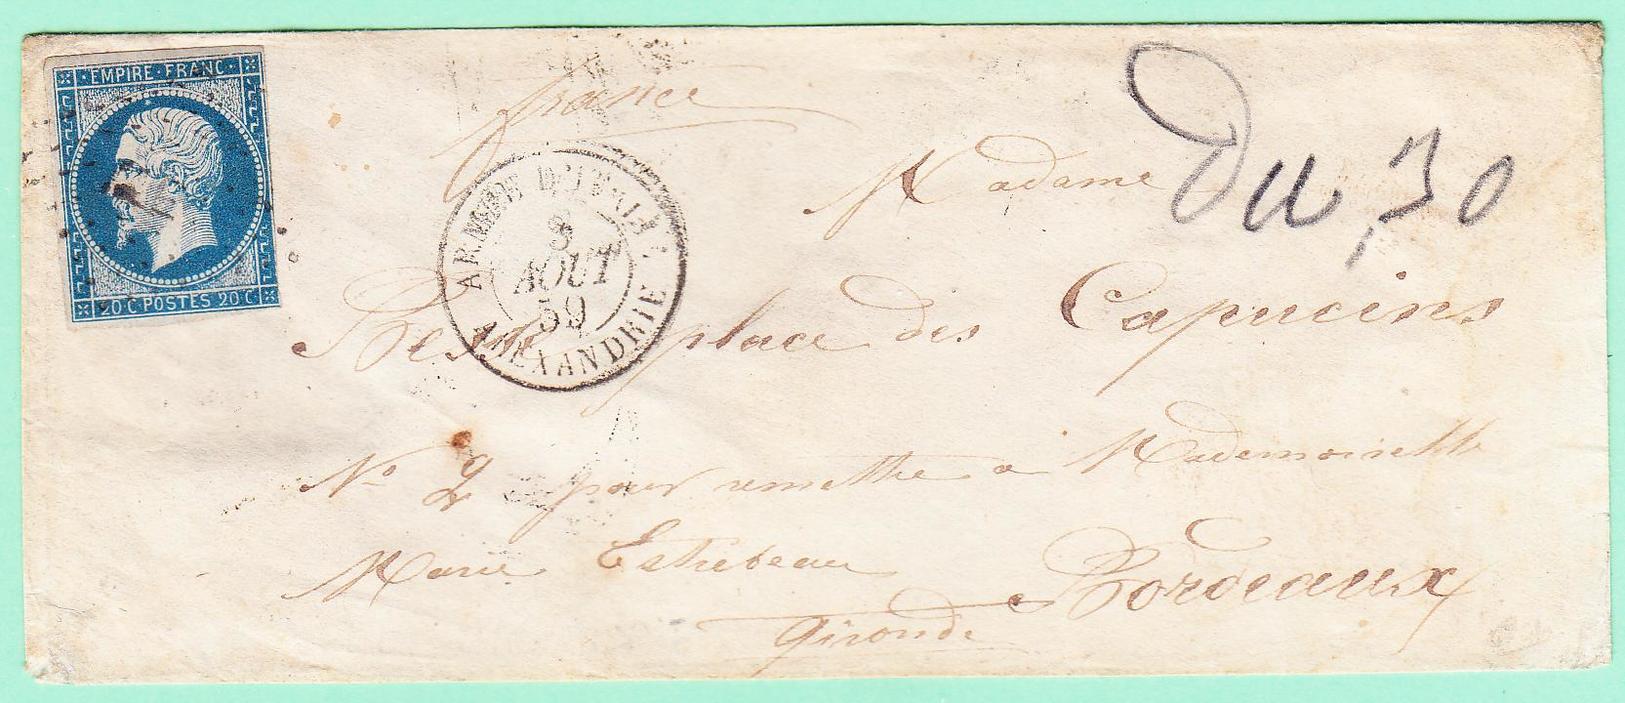 EMPIRE FRANC
20 C POSTES 20 C
france
ARMÉE D'ITALIE
8
AOUT
59
ALEXANDRIE
Madame
place des Capucins
N° 2 pour remettre a Mademoiselle
Marie Estrebeau
Bordeaux
Gironde